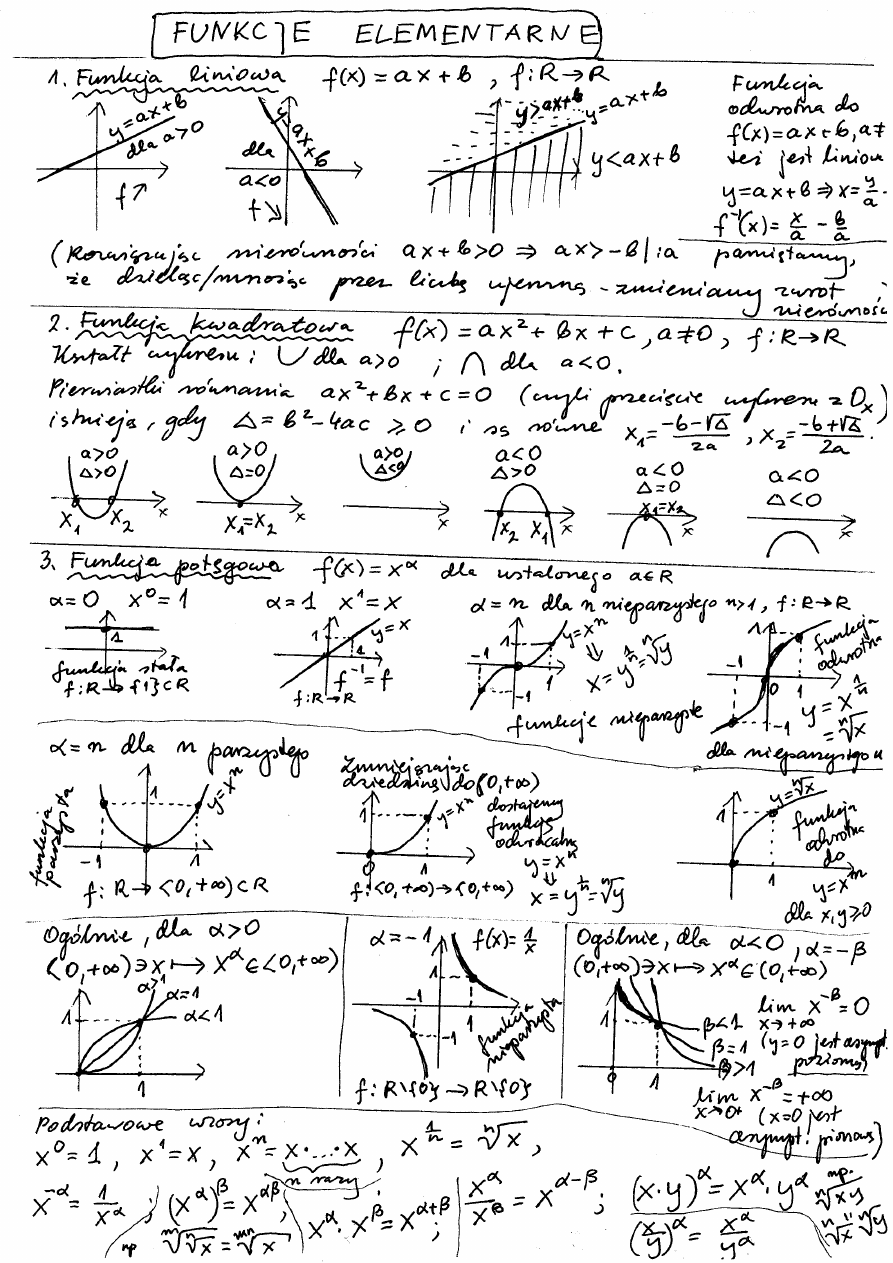 FUNKCJE ELEMENTARNE
1. Funkcja liniowa f(x) = ax + b , f: R → R
y=ax+b
dla a>0
f ↗
y=ax+b
dla
a<0
f ↘
y>ax+b
y=ax+b
y<ax+b
Funkcja
odwrotna do
f(x)=ax+b, a≠
też jest liniow
y=ax+b ⇒ x= y/a -
f⁻¹(x)= x/a - b/a
(Rozwiązując nierówności ax+b>0 ⇒ ax>-b |:a pamiętamy,
że dzieląc/mnożąc przez liczbę ujemną - zmieniamy zwrot
nierównośc
2. Funkcja kwadratowa f(x) = ax² + bx + c , a≠0 , f: R → R
Kształt wykresu: ∪ dla a>0 ; ∩ dla a<0.
Pierwiastki równania ax²+bx+c=0 (czyli przecięcie wykresu z Ox)
istnieją, gdy Δ = b²-4ac ⩾ 0 i są równe x₁= (-b-√Δ)/2a , x₂= (-b+√Δ)/2a .
a>0
Δ>0
x₁ x₂ x
a>0
Δ=0
x₁=x₂ x
a>0
Δ<0
x
a<0
Δ>0
x₂ x₁ x
a<0
Δ=0
x₁=x₂
x
a<0
Δ<0
x
3. Funkcja potęgowa f(x) = x^α dla ustalonego α∈R
α=0 x⁰=1
1
funkcja stała
f: R → {1} ⊂ R
α=1 x¹=x
1
y=x
1
f⁻¹=f
f: R → R
α=n dla n nieparzystego n>1, f: R → R
y=xⁿ
⇓
x = y^(1/n) = ⁿ√y
1
-1
1
-1
funkcje nieparzyste
funkcja
odwrotna
1
-1
1
-1
y = x^(1/n)
= ⁿ√x
dla nieparzystego n
α=n dla n parzystego
funkcja
parzysta
1
y=xⁿ
-1 1
f: R → <0,+∞) ⊂ R
Zmniejszając
dziedzinę do <0,+∞)
1
y=xⁿ
0 1
dostajemy
funkcję
odwracalną
y=xⁿ
⇓
x = y^(1/n) = ⁿ√y
f: <0,+∞) → <0,+∞)
y=ⁿ√x
1
0 1
funkcja
odwrotna
do
y=xⁿ
dla x,y≥0
Ogólnie, dla α>0
<0,+∞) ∋ x ↦ x^α ∈ <0,+∞)
α>1
α=1
α<1
1
0 1
α=-1 f(x)= 1/x
1
-1
1
-1
funkcja
nieparzysta
f: R\{0} → R\{0}
Ogólnie, dla α<0 , α=-β
(0,+∞) ∋ x ↦ x^α ∈ (0,+∞)
1
β<1
β=1
β>1
0 1
lim x^(-β) = 0
x→+∞
(y=0 jest asympt.
poziomą)
lim x^(-β) = +∞
x→0+ (x=0 jest
asympt. pionową)
Podstawowe wzory:
x⁰=1 , x¹=x , xⁿ = x·...·x , x^(1/n) = ⁿ√x ,
n razy
x^(-α) = 1/x^α ; (x^α)^β = x^(αβ) ; x^α · x^β = x^(α+β) ; x^α/x^β = x^(α-β) ; (x·y)^α = x^α · y^α
np ᵐ√(ⁿ√x) = ᵐⁿ√x
(x/y)^α = x^α/y^α
np.
ⁿ√(xy)
=
ⁿ√x ⁿ√y